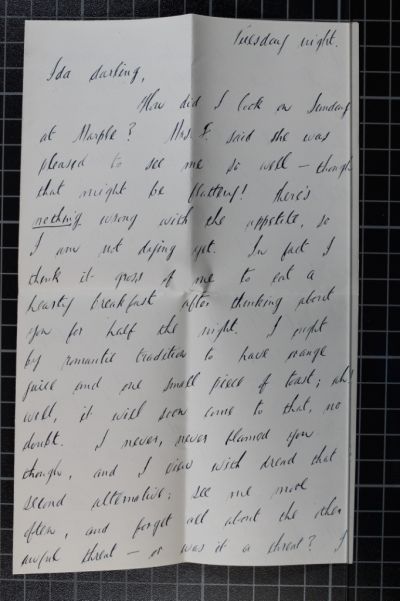 Tuesday night.
Ida darling,
How did I look on Sunday
at Marple? Mrs. F. said she was
pleased to see me so well — though
that might be flattery! There's
nothing wrong with the appetite, so
I am not dying yet. In fact I
think it gross of me to eat a
hearty breakfast after thinking about
you for half the night. I ought
by romantic tradition to have orange
juice and one small piece of toast; ah!
well, it will soon come to that, no
doubt. I never, never blamed you
though, and I view with dread that
second alternative; see me more
often, and forget all about the other
awful threat — or was it a threat? I